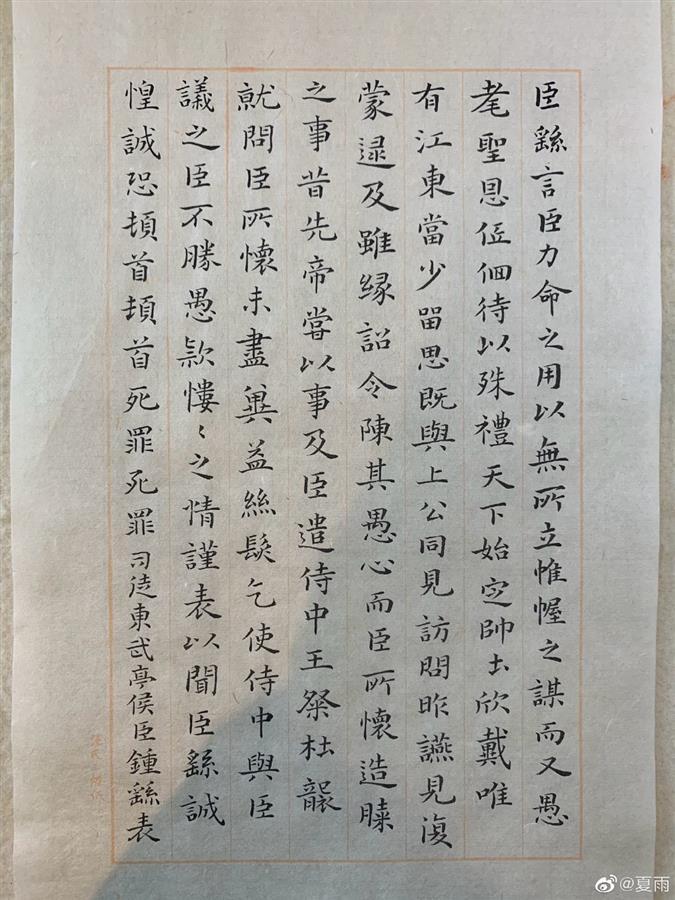 臣繇言臣力命之用以無所立惟幄之謀而又愚
耄聖恩低佪待以殊禮天下始定帥土欣戴唯
有江東當少留思既與上公同見訪問昨讌見復
蒙逮及雖緣詔令陳其愚心而臣所懷造膝
之事昔先帝嘗以事及臣遣侍中王粲杜襲
就問臣所懷未盡冀益絲髮乞使侍中與臣
議之臣不勝愚款慺〻之情謹表以聞臣繇誠
惶誠恐頓首頓首死罪死罪司徒東武亭侯臣鍾繇表
@夏雨